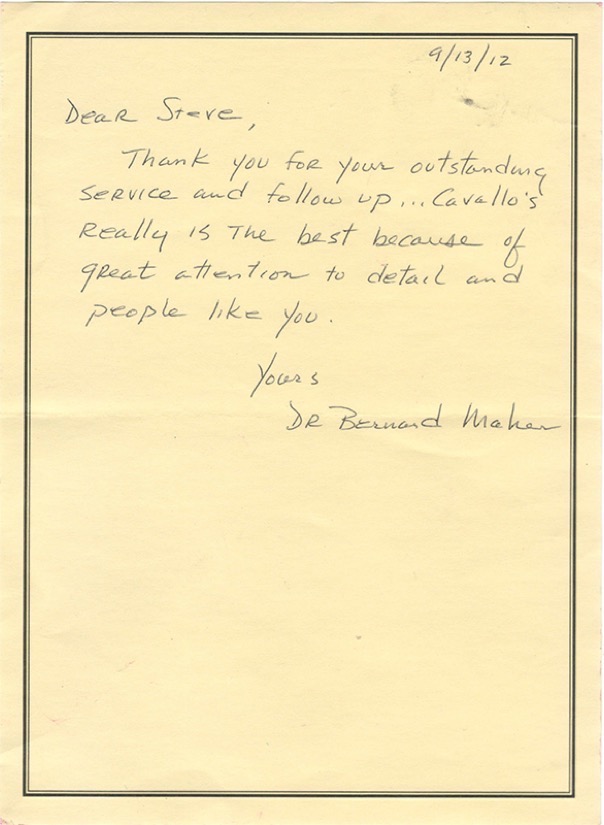 9/13/12
Dear Steve,
Thank you for your outstanding
service and follow up... Cavallo's
Really is The best because of
great attention to detail and
people like you.
Yours
DR Bernard Maher